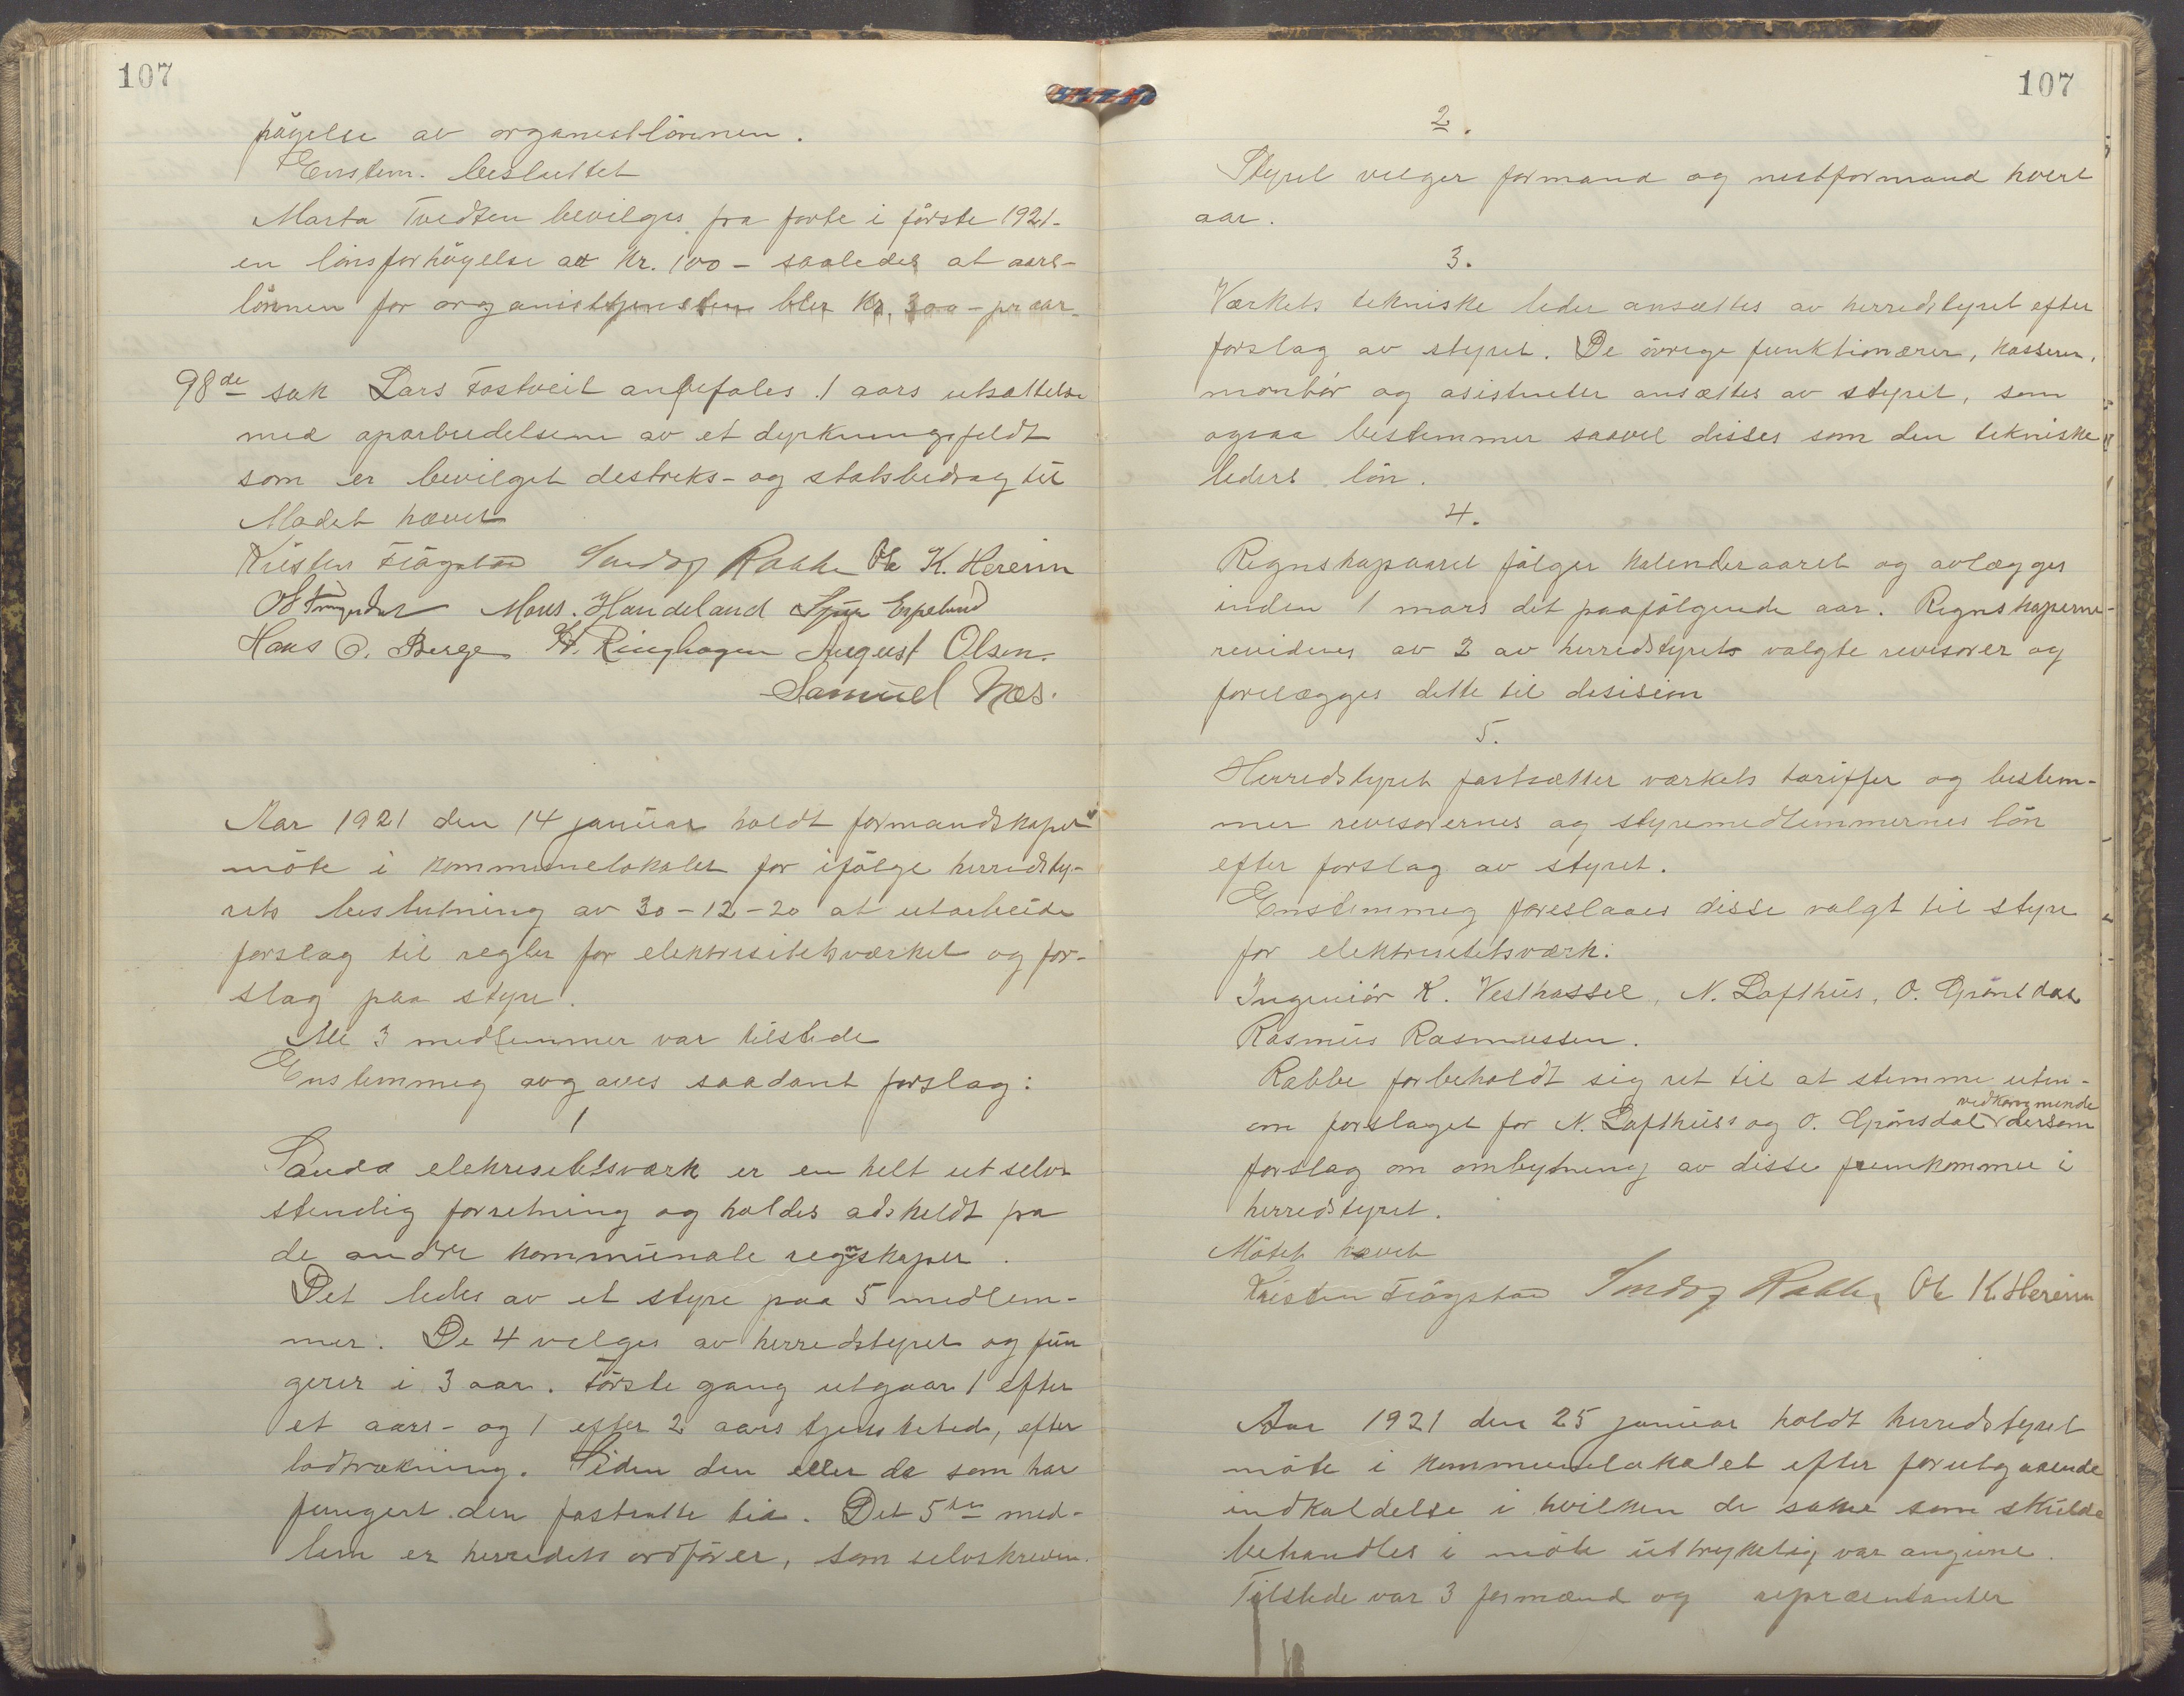 107
høyelse av organistlønnen.
Enstem. besluttet
Marta Tvedten bevilges fra förte i förste 1921-
en lönsforhöyelse att Kr. 100 - saaledes at aars-
lönnen for organisttjenesten bler Kr. 300 - pr aar.
98de sak Lars Fostveit anbefales 1 aars utsættelse
med oparbeidelsene av et dyrkningsfeldt
som er bevilget destrikts- og statsbidrag til
Mødet hævet
Kristen Fløgstad Sundøy Rabbe Ole K. Hereim
Mons. Handeland Sjur Espeland
Hans O. Berge H. Ringhagen August Olsen.
Samuel Næs.
Aar 1921 den 14 januar holdt formandskapet
möte i kommunelokalet for ifölge herredsty-
rets beslutning av 30-12-20 at utarbeide
forslag til regler for elektrisitetsværket og for-
slag paa styre.
Alle 3 medlemmer var tilstede
Enstemmig avgaves saadant forslag:
1
Sauda elekrisitetsværk er en helt ut selv-
stendig forretning og holdes adskeldt fra
de andre kommunale regnskaper.
Det ledes av et styre paa 5 medlem-
mer. De 4 velges av herredstyret og fun
gerer i 3 aar. Förste gang utgaar 1 efter
et aars- og 1 efter 2 aars tjenstetid, efter
lodtrækning. Siden den eller de som har
fungert den fastsatte tid. Det 5te med-
lem er herredets ordförer, som selvskreven.
107
2.
Styret velger formand og nestformand hvert
aar.
3.
Værkets tekniske leder ansættes av herredstyret efter
forslag av styret. De övrige funktionærer, kasserer,
montör og asistenter ansættes av styret, som
ogsaa bestemmer saavel disses som den tekniske
leders lön.
4.
Regnskapsaaret fölger kalenderaaret og avlægges
inden 1 mars det paafölgende aar. Regnskaperne
revideres av 2 av herredstyrets valgte revisorer og
forelægges dette til desision
5.
Herredstyret fastsætter værkets tariffer og bestem-
mer revisorernes og styremedlemmernes lön
efter forslag av styret.
Enstemmig foreslaaes disse valgt til styre
for elektrisitetsværk:
Ingeniör K. Vesthassel, N. Lofthus, O. Grönsdal
Rasmus Rasmussen.
Rabbe forbeholdt sig ret til at stemme uten-
om forslaget for N. Lofthus's og O. Grönsdal vedkommende dersom
forslag om ombytning av disse fremkommer i
herredstyret.
Mötet hævet
Kristen Fløgstad Sundøy Rabbe Ole K. Hereim
Aar 1921 den 25 januar holdt herredstyret
möte i kommunelokalet efter forutgaaende
indkaldelse i hvilken de saker som skulde
behandles i möte uttrykkelig var angivne.
Tilstede var 3 formænd og repræsentanter